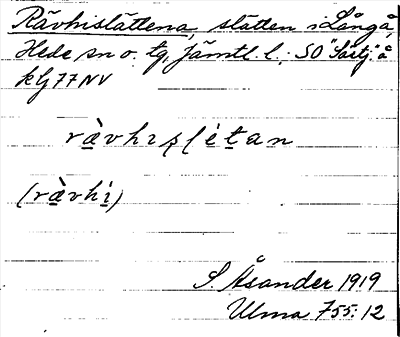 Rävhislåttena, slåtten i Långå,
Hede sn o. tg, Jämtl. l.; SO "Särtj." å
kbj 77 NV
rä̀vhɩṣʃétan
(rä̀vhì)
S. Åsander 1919
Ulma 755:12